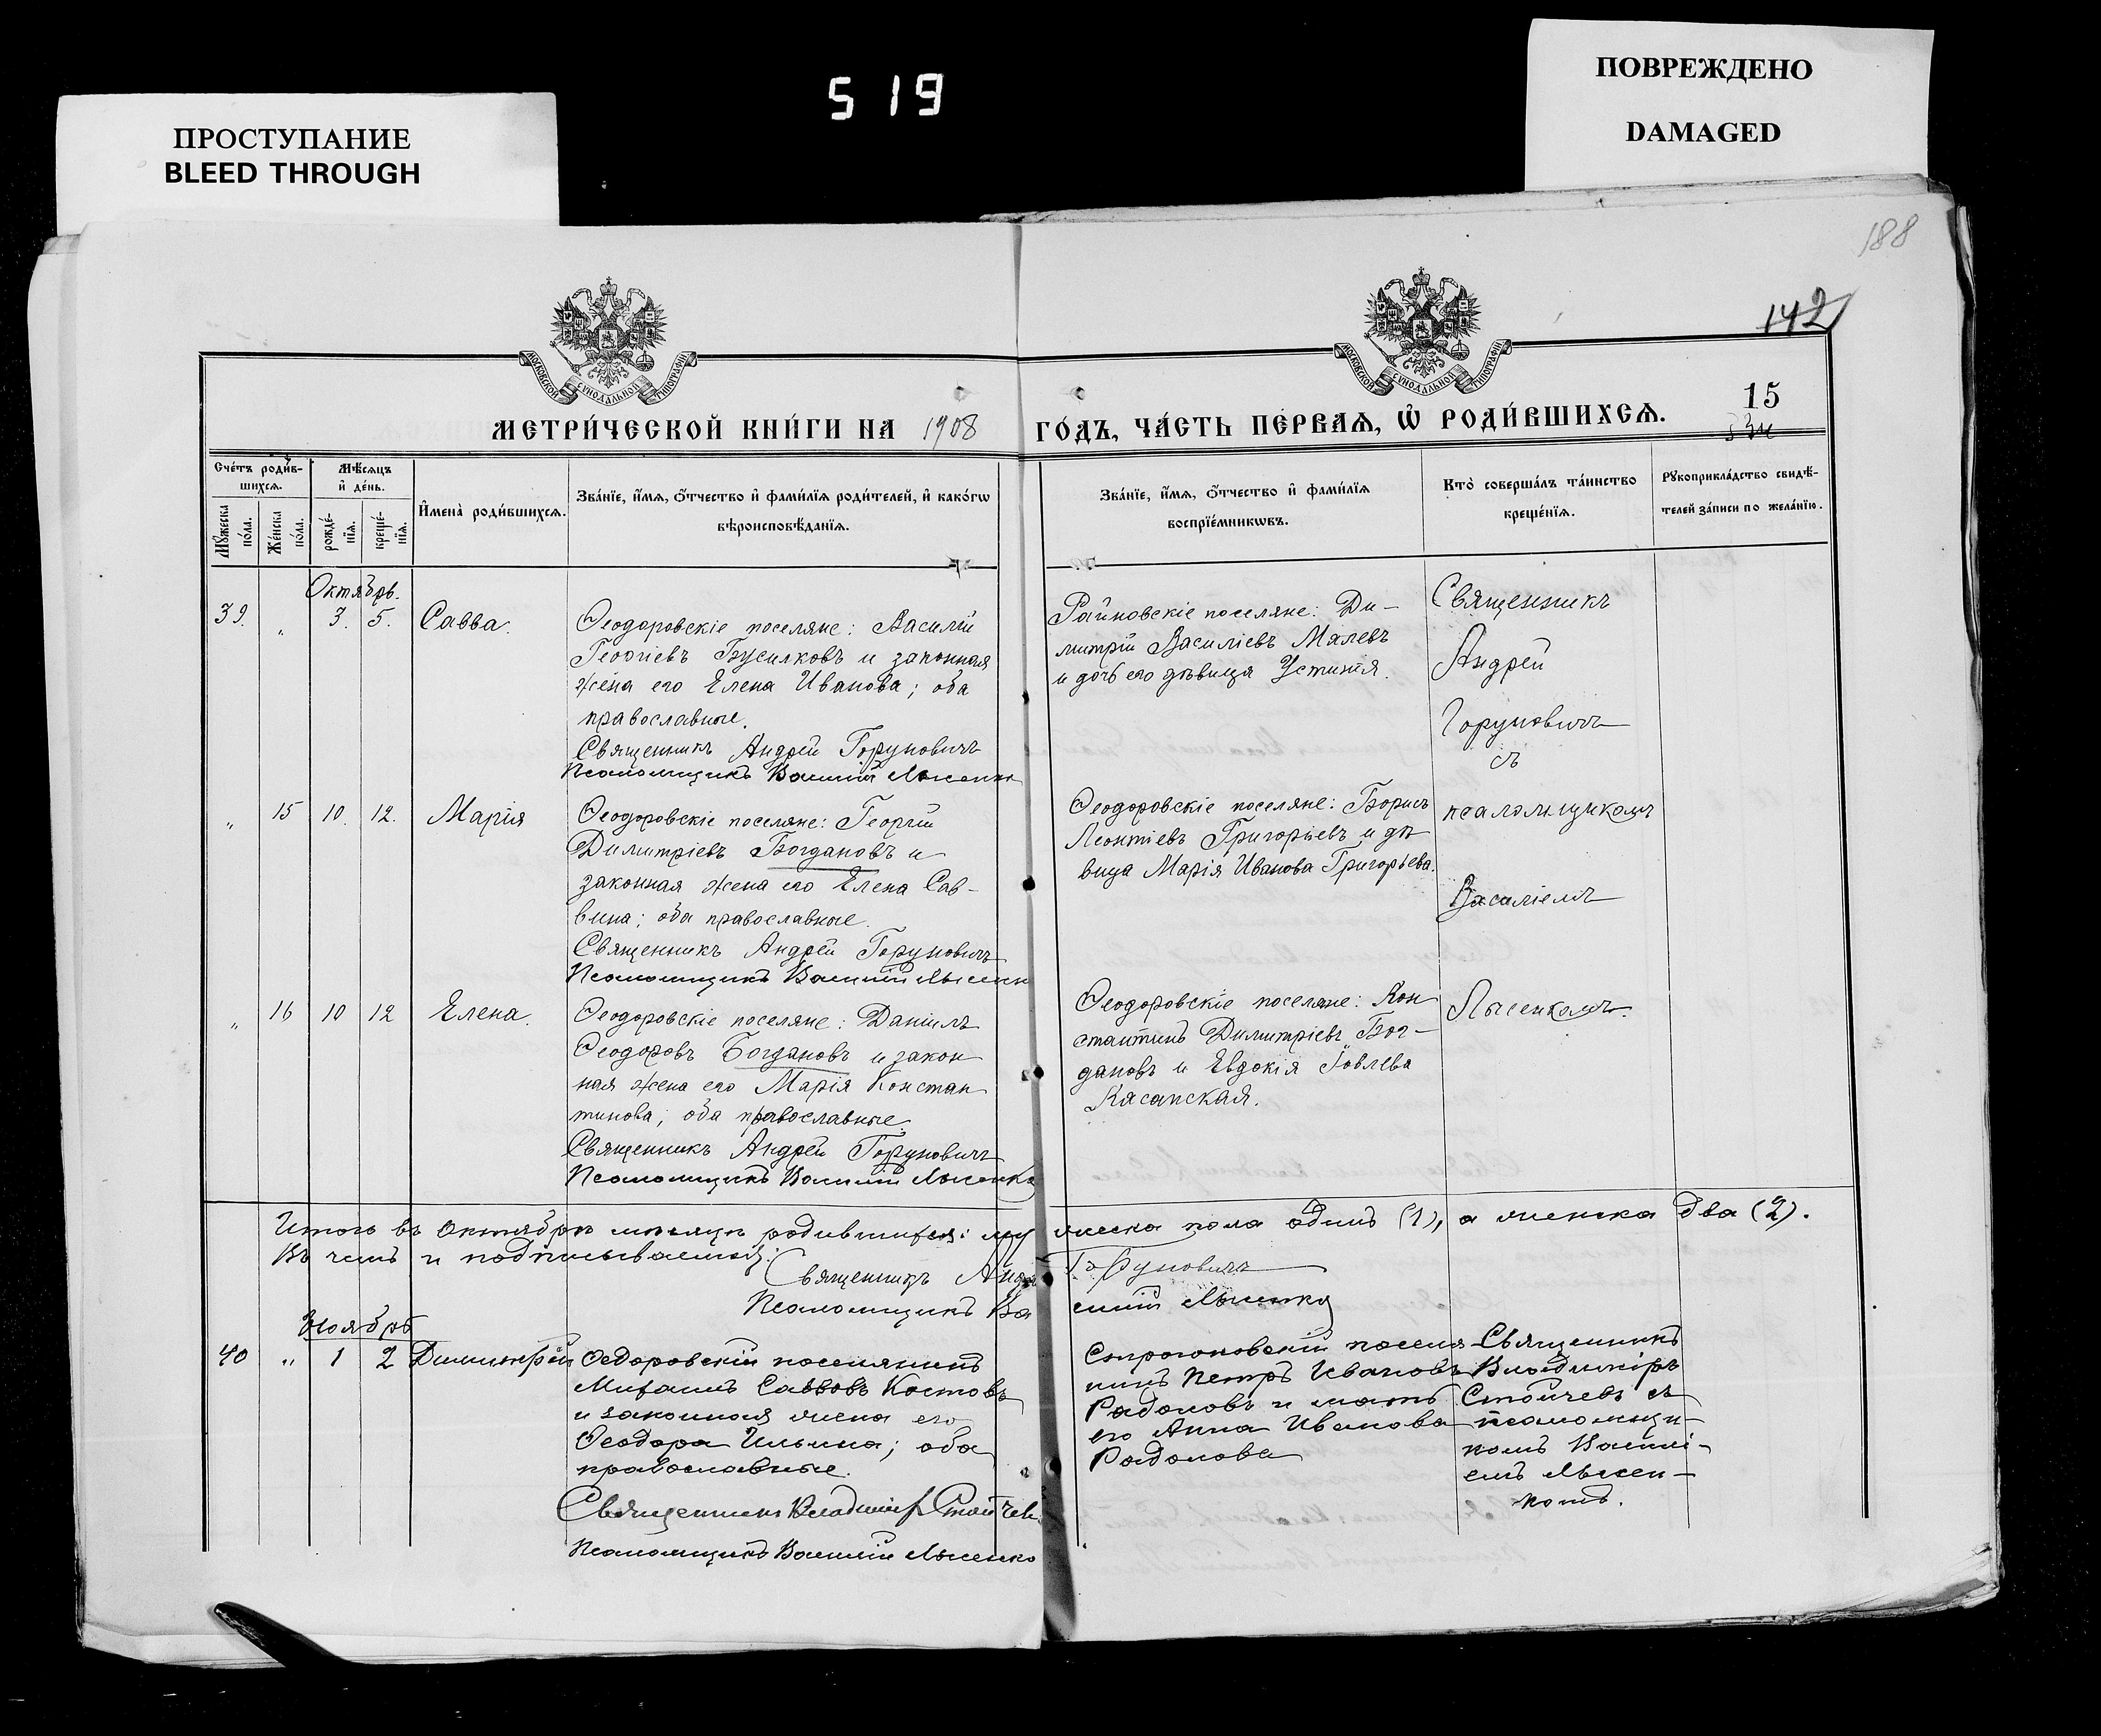 ПРОСТУПАНИЕ
BLEED THROUGH
519
ПОВРЕЖДЕНО
DAMAGED
188
142
МОСКОВСКОЙ СѴНОДАЛЬНОЙ ТИПОГРАФІИ
МОСКОВСКОЙ СѴНОДАЛЬНОЙ ТИПОГРАФІИ
15
МЕТРИ́ЧЕСКОЙ КНИ́ГИ НА 1908 ГО́ДЪ, ЧА́СТЬ ПЕ́РВАѦ, Ѡ҆ РОДИ́ВШИХСѦ.
Сче́тъ роди́в-
шихсѧ.
Мꙋ́жеска по́ла.
Же́нска по́ла.
Мѣ́сѧцъ
и҆ де́нь.
рожде́-
нїѧ.
креще́-
нїѧ.
И҆мена̀ роди́вшихсѧ.
Зва́нїе, и҆́мѧ, ѻ҆́тчество и҆ фами́лїѧ роди́телей, и҆ како́гѡ
вѣроисповѣ́данїѧ.
Зва́нїе, и҆́мѧ, ѻ҆́тчество и҆ фами́лїѧ
воспрїе́мникѡвъ.
Кто̀ соверша́лъ та́инство
креще́нїѧ.
Рꙋкоприкла́дство свидѣ́-
телей за́писи по жела́нїю.
Октябрь.
39. " 3. 5. Савва.
Ѳеодоровскіе поселяне: Василій
Георгіевъ Бусилковъ и законная
жена его Елена Иванова; оба
православные.
Священникъ Андрей Горуновичъ
Псаломщикъ Василій Лысенко
Райновскіе поселяне: Ди-
митрій Василіевъ Малевъ
и дочь его дѣвица Устинія.
Священникъ
Андрей
Горуновичъ
съ
псаломщикомъ
Василіемъ
Лысенкомъ.
" 15 10. 12. Марія
Ѳеодоровскіе поселяне: Георгій
Димитріевъ Богдановъ и
законная жена его Елена Сав-
вина; оба православные.
Священникъ Андрей Горуновичъ
Псаломщикъ Василій Лысенко
Ѳеодоровскіе поселяне: Борисъ
Леонтіевъ Григорьевъ и дѣ
вица Марія Иванова Григорьева.
" 16 10 12 Елена.
Ѳеодоровскіе поселяне: Даніилъ
Ѳеодоровъ Богдановъ и закон
ная жена его Марія Констан
тинова; оба православные.
Священникъ Андрей Горуновичъ
Псаломщикъ Василій Лысенко
Ѳеодоровскіе поселяне: Кон
стантинъ Димитріевъ Бог-
дановъ и Евдокія Іовлева
Касапская.
Итого въ Октябрѣ мѣсяцѣ родившихся: мужеска пола одинъ (1), а женска два (2).
Въ чемъ и подписываемся:
Священникъ Андрей Горуновичъ
Псаломщикъ Василій Лысенко
Ноябрь
40 " 1 2 Димитрій
Ѳедоровскій поселянинъ
Михаилъ Саввовъ Костовъ
и законная жена его
Ѳеодора Ильина; оба
православные.
Священникъ Владиміръ Стойчевъ
Псаломщикъ Василій Лысенко
поселя
нинъ Петръ Ивановъ
Радоловъ и мать
его Анна Иванова
Радолова
Священникъ
Владиміръ
Стойчевъ съ
псаломщи-
комъ Васили-
емъ Лысен-
комъ.